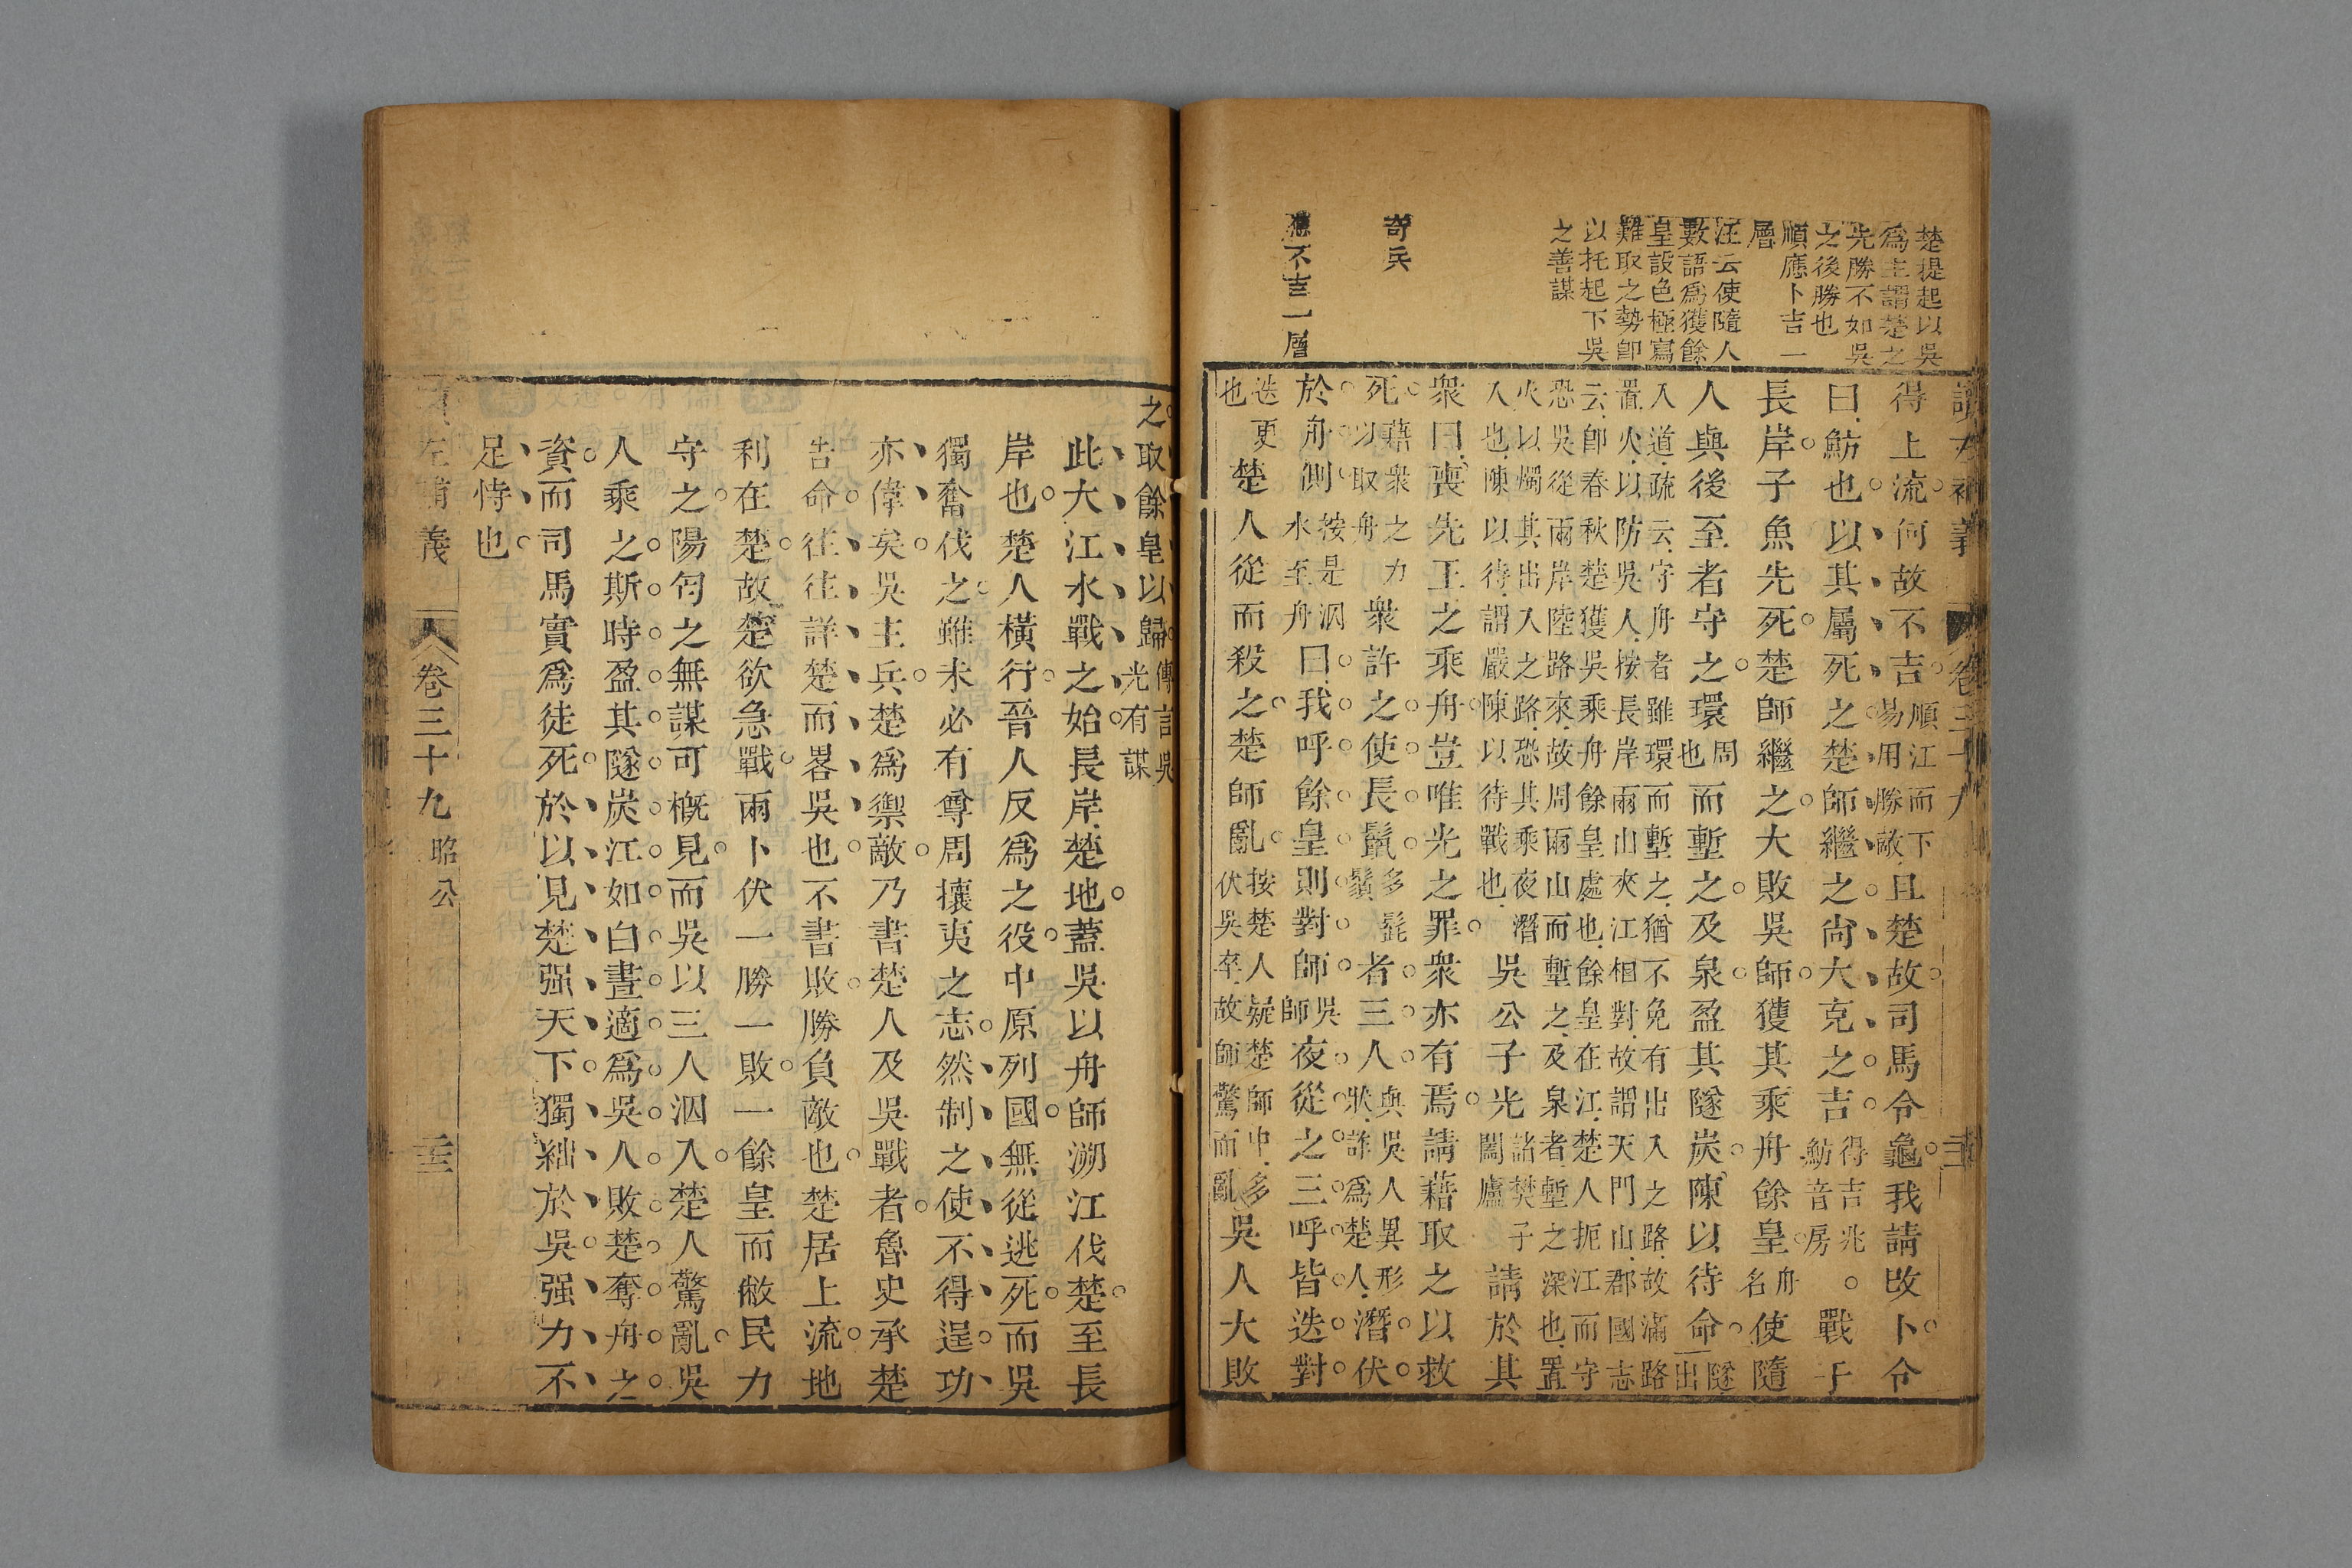 楚提起以吳
為主謂楚之
先勝不如吳
之後勝也
順應卜吉一
層
汪云使隨人
數語為獲餘
皇設色極寫
難取之勢即
以托起下吳
之善謀
奇兵
應不吉一層
得上流何故不吉順江而下易用勝敵且楚故司馬令龜我請改卜令
曰魴也以其屬死之楚師繼之尚大克之吉得吉兆魴音房○戰于
長岸子魚先死楚師繼之大敗吳師獲其乘舟餘皇舟名使隨
人與後至者守之環周也而塹之及泉盈其隧炭陳以待命隧出
入道疏云守舟者雖環而塹之猶不免有出入之路故滿路
置火以防吳人按長岸兩山夾江相對故謂天門山郡國志
云即春秋楚獲吳乘舟餘皇處也餘皇在江楚人扼江而守
恐吳從兩岸陸路來故周兩山而塹之及泉者塹之深也置
火以燭其出入之路恐其乘夜潛
入也陳以待謂嚴陳以待戰也吳公子光諸樊子闔廬請於其
衆曰喪先王之乘舟豈唯光之罪衆亦有焉請藉取之以救
死藉衆之力以取舟衆許之使長鬣多髭鬚者三人與吳人異形狀詐為楚人潛伏
於舟側按是泅水至舟曰我呼餘皇則對師吳師夜從之三呼皆迭對
迭更也楚人從而殺之楚師亂按楚人疑楚師中多伏吳卒故師驚而亂吳人大敗
之取餘皇以歸傳言吳光有謀
此大江水戰之始長岸楚地蓋吳以舟師溯江伐楚至長
岸也楚人橫行晉人反為之役中原列國無從逃死而吳
獨奮伐之雖未必有尊周攘夷之志然制之使不得逞功
亦偉矣吳主兵楚為禦敵乃書楚人及吳戰者魯史承楚
告命往往詳楚而畧吳也不書敗勝負敵也楚居上流地
利在楚故楚欲急戰兩卜伏一勝一敗一餘皇而敝民力
守之陽匄之無謀可概見而吳以三人泅入楚人驚亂吳
人乘之斯時盈其隧炭江如白晝適為吳人敗楚奪舟之
資而司馬實為徒死於以見楚强天下獨絀於吳强力不
足恃也
左補義 卷三十九 昭公